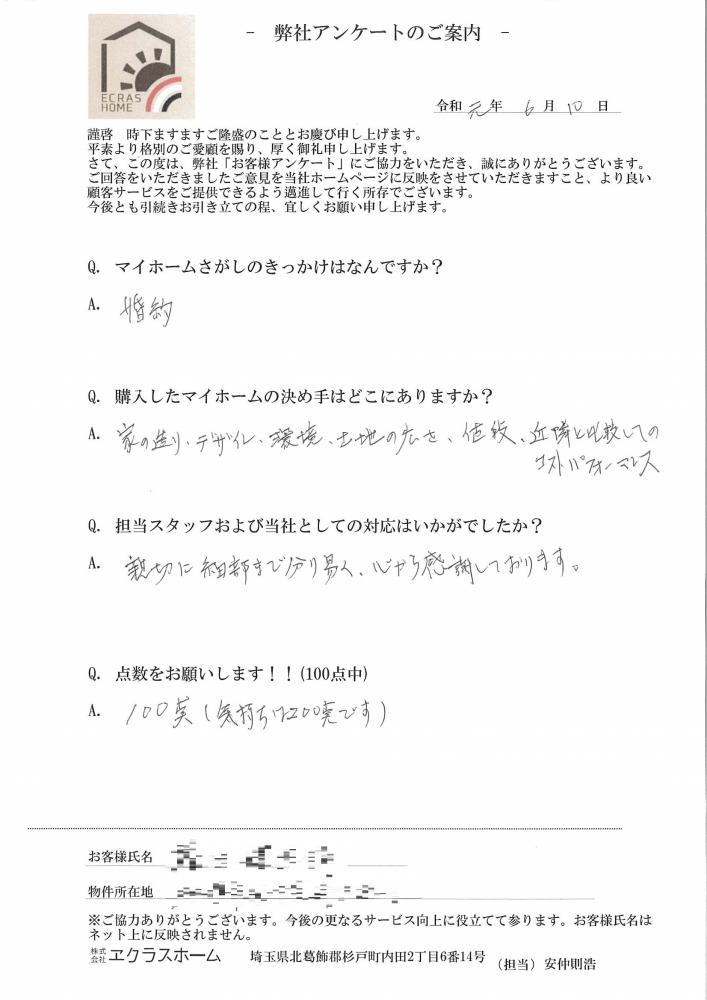 ECRAS
HOME
- 弊社アンケートのご案内 -
令和 元 年 6 月 10 日
謹啓 時下ますますご隆盛のこととお慶び申し上げます。
平素より格別のご愛顧を賜り、厚く御礼申し上げます。
さて、この度は、弊社「お客様アンケート」にご協力をいただき、誠にありがとうございます。
ご回答をいただきましたご意見を当社ホームページに反映をさせていただきますこと、より良い
顧客サービスをご提供できるよう邁進して行く所存でございます。
今後とも引続きお引き立ての程、宜しくお願い申し上げます。
Q. マイホームさがしのきっかけはなんですか？
A. 婚約
Q. 購入したマイホームの決め手はどこにありますか？
A. 家の造り、デザイン、環境、土地の広さ、値段、近隣と比較しての
コストパフォーマンス
Q. 担当スタッフおよび当社としての対応はいかがでしたか？
A. 親切に細部まで分り易く、心から感謝しております。
Q. 点数をお願いします！！(100点中)
A. 100点(気持ちは200点です)
お客様氏名
物件所在地
※ご協力ありがとうございます。今後の更なるサービス向上に役立てて参ります。お客様氏名は
ネット上に反映されません。
株式会社 ヱクラスホーム 埼玉県北葛飾郡杉戸町内田2丁目6番14号 (担当) 安仲則浩